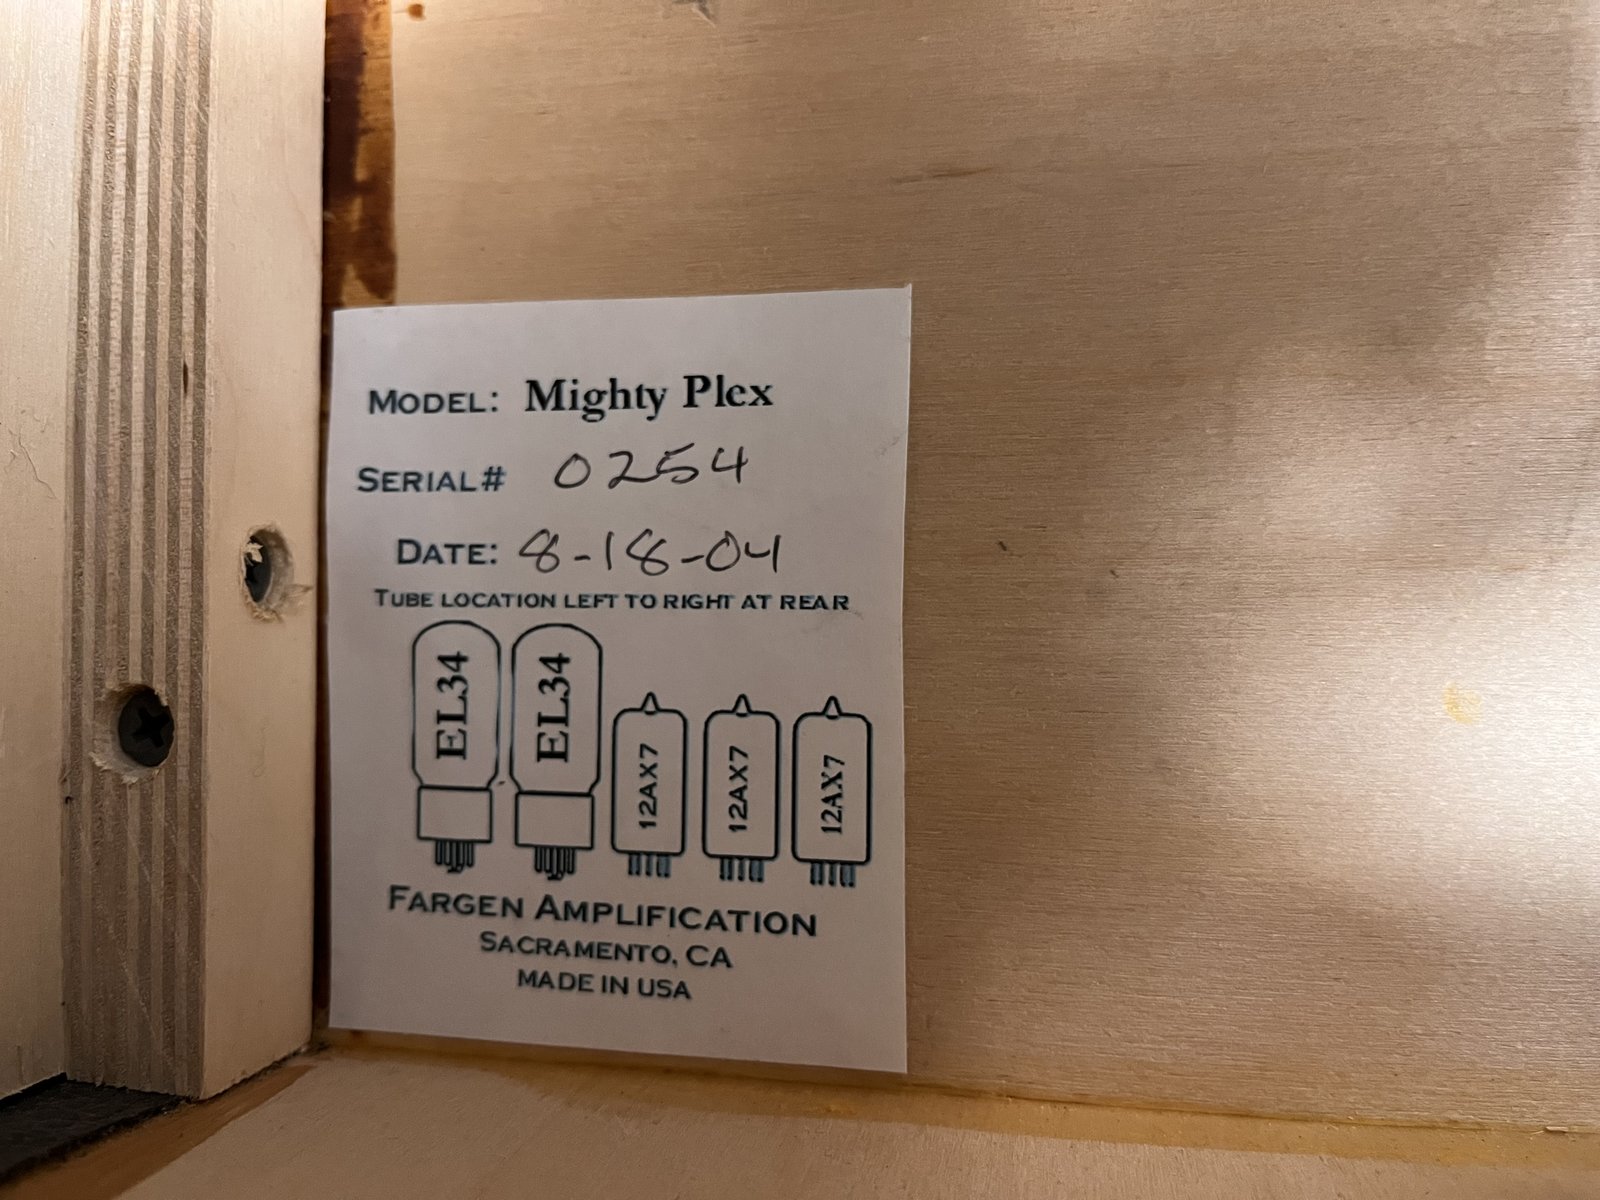 MODEL: Mighty Plex
SERIAL# 0254
DATE: 8-18-04
TUBE LOCATION LEFT TO RIGHT AT REAR
EL34 EL34 12AX7 12AX7 12AX7
FARGEN AMPLIFICATION
SACRAMENTO, CA
MADE IN USA